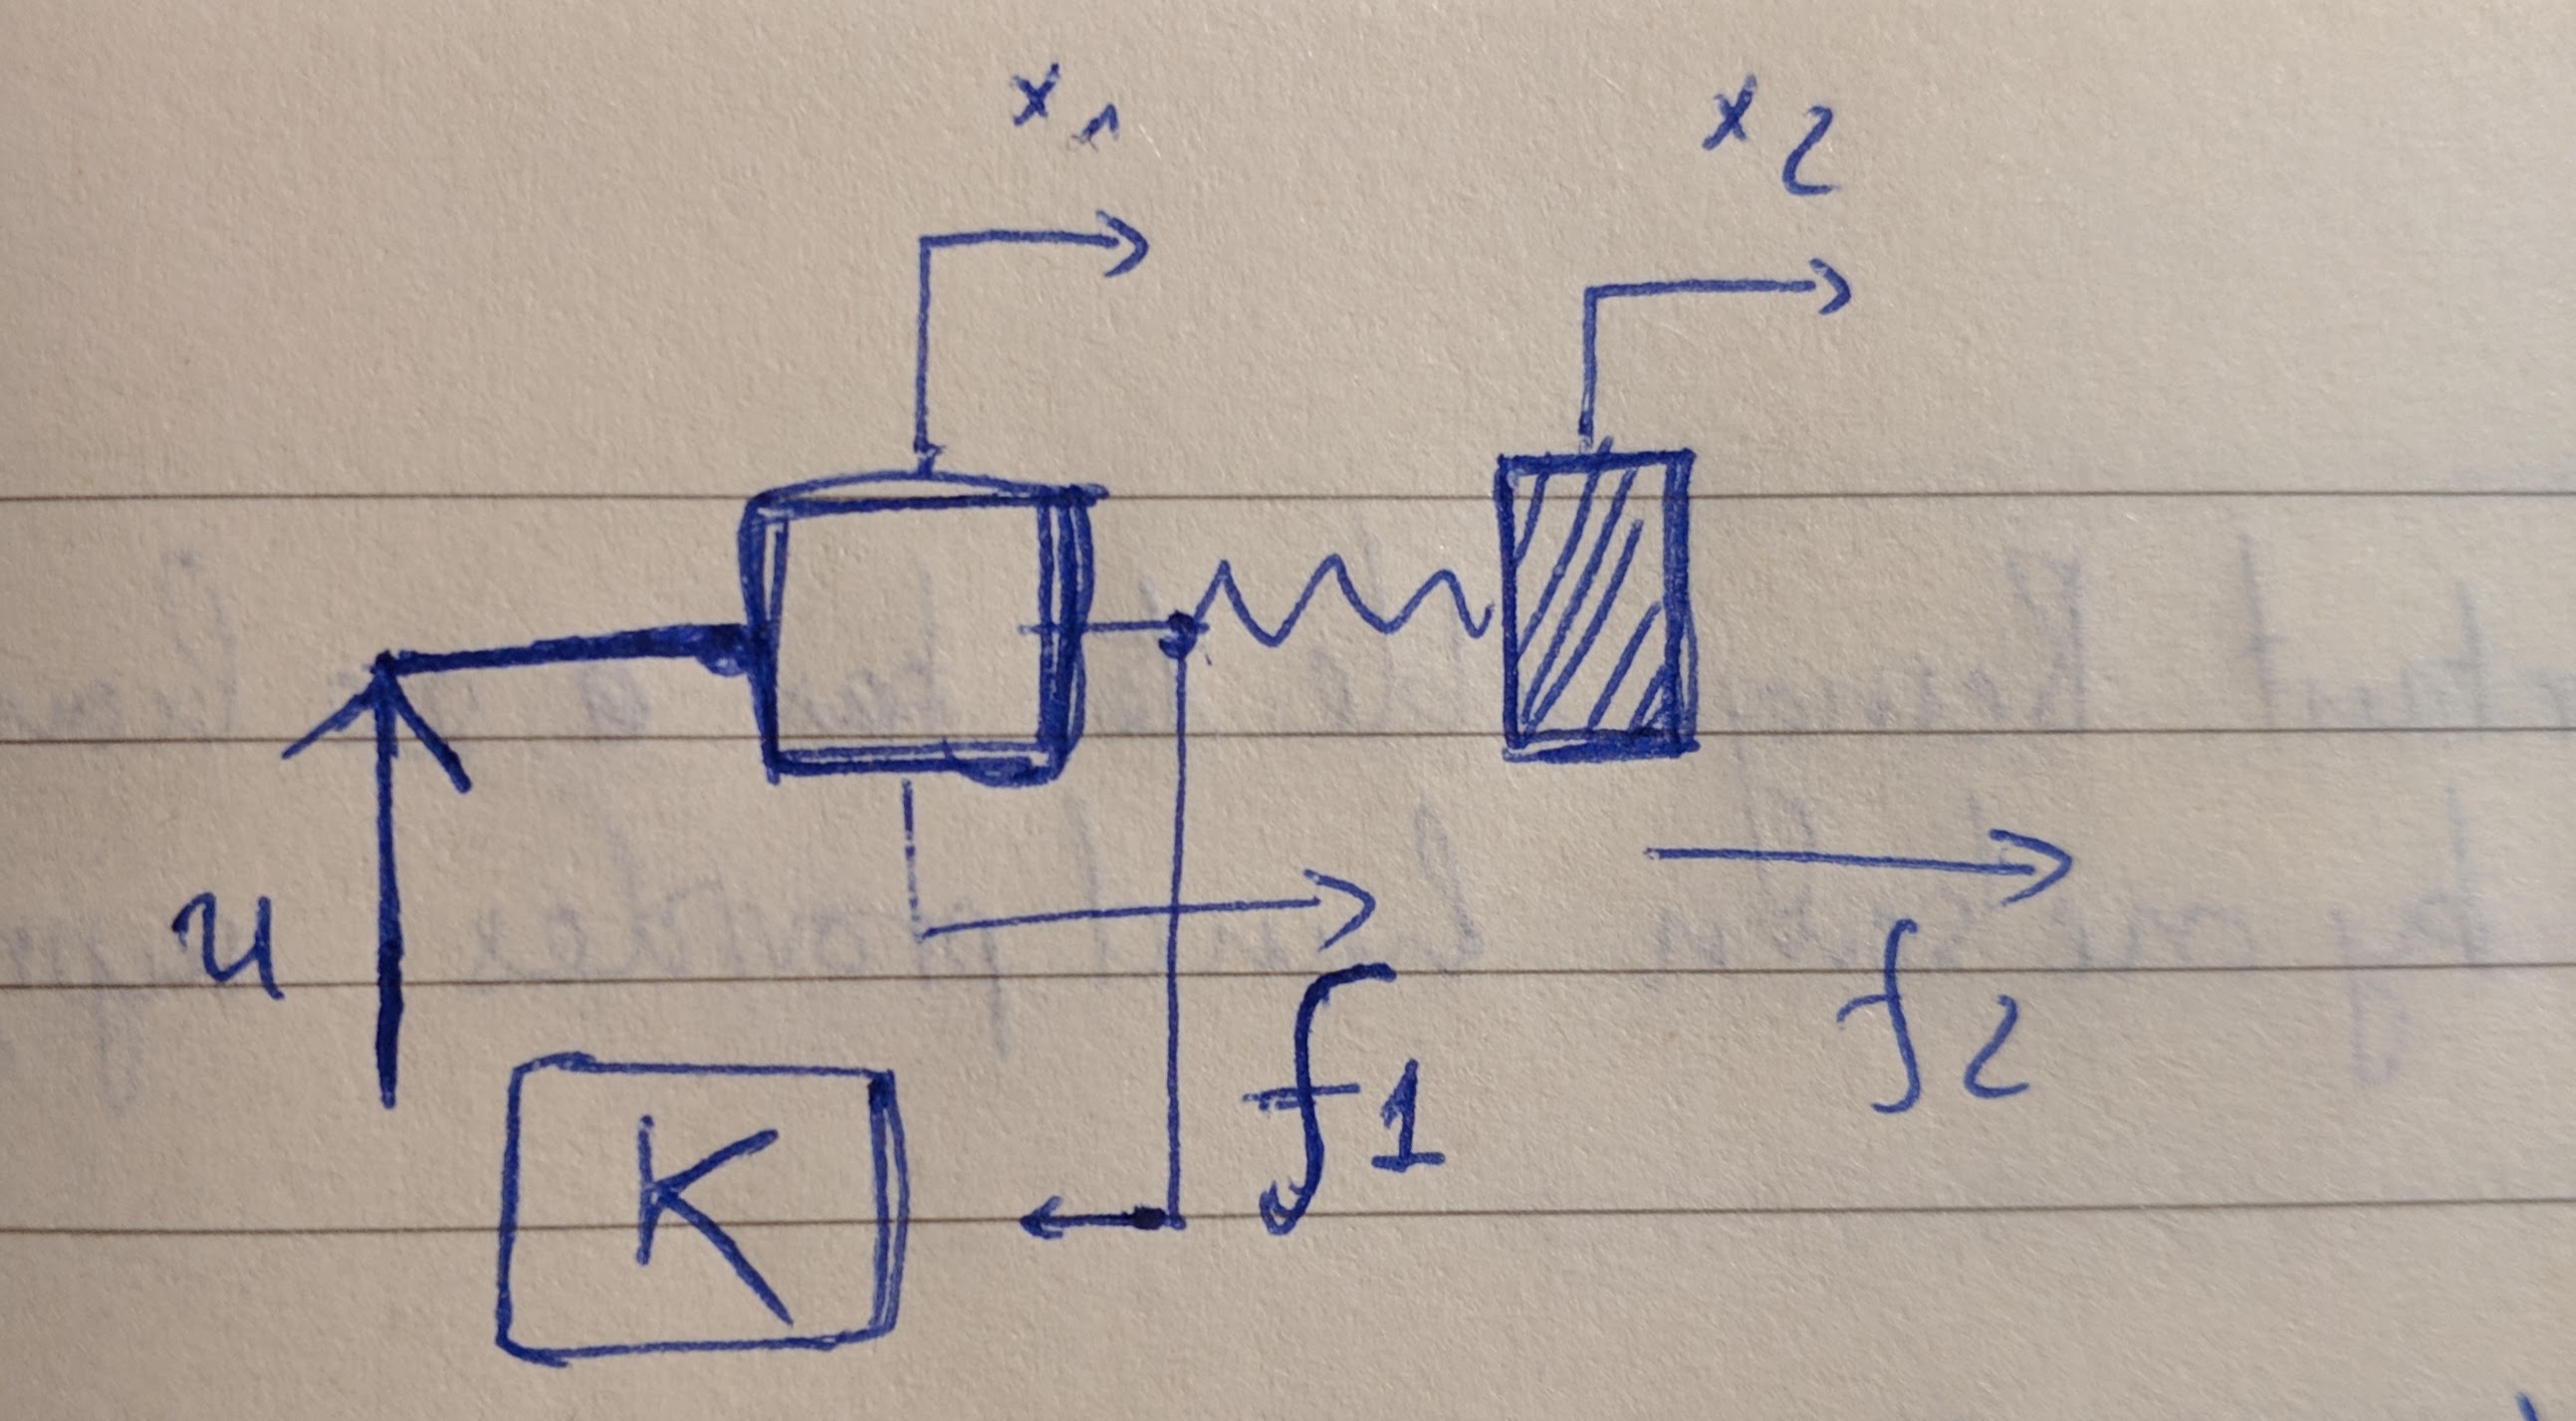 x1
x2
u
f1
f2
K